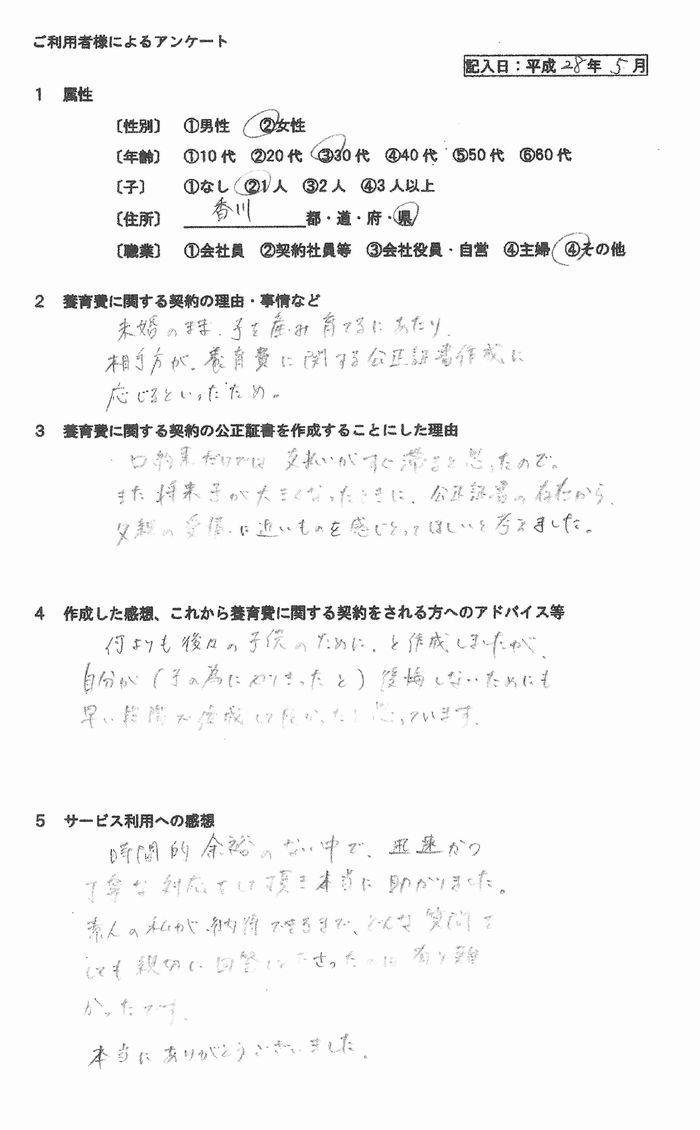 ご利用者様によるアンケート
記入日:平成28年5月
1 属性
〔性別〕 ①男性 ②女性
〔年齢〕 ①10代 ②20代 ③30代 ④40代 ⑤50代 ⑥60代
〔子〕 ①なし ②1人 ③2人 ④3人以上
〔住所〕 香川 都・道・府・県
〔職業〕 ①会社員 ②契約社員等 ③会社役員・自営 ④主婦 ④その他
2 養育費に関する契約の理由・事情など
未婚のまま、子を産み育てるにあたり、
相手方が、養育費に関する公正証書作成に
応じるといったため。
3 養育費に関する契約の公正証書を作成することにした理由
口約束だけでは支払いがすぐ滞ると思ったので。
また将来子が大きくなったときに、公正証書の存在から、
父親の愛情に近いものを感じとってほしいと考えました。
4 作成した感想、これから養育費に関する契約をされる方へのアドバイス等
何よりも後々の子供のために、と作成しましたが、
自分が(子の為にやりきったと)後悔しないためにも
早い段階で作成して良かったと思っています。
5 サービス利用への感想
時間的余裕のない中で、迅速かつ
丁寧な対応をして頂き本当に助かりました。
素人の私が納得できるまで、どんな質問を
しても親切に回答くださったのは有り難
かったです。
本当にありがとうございました。